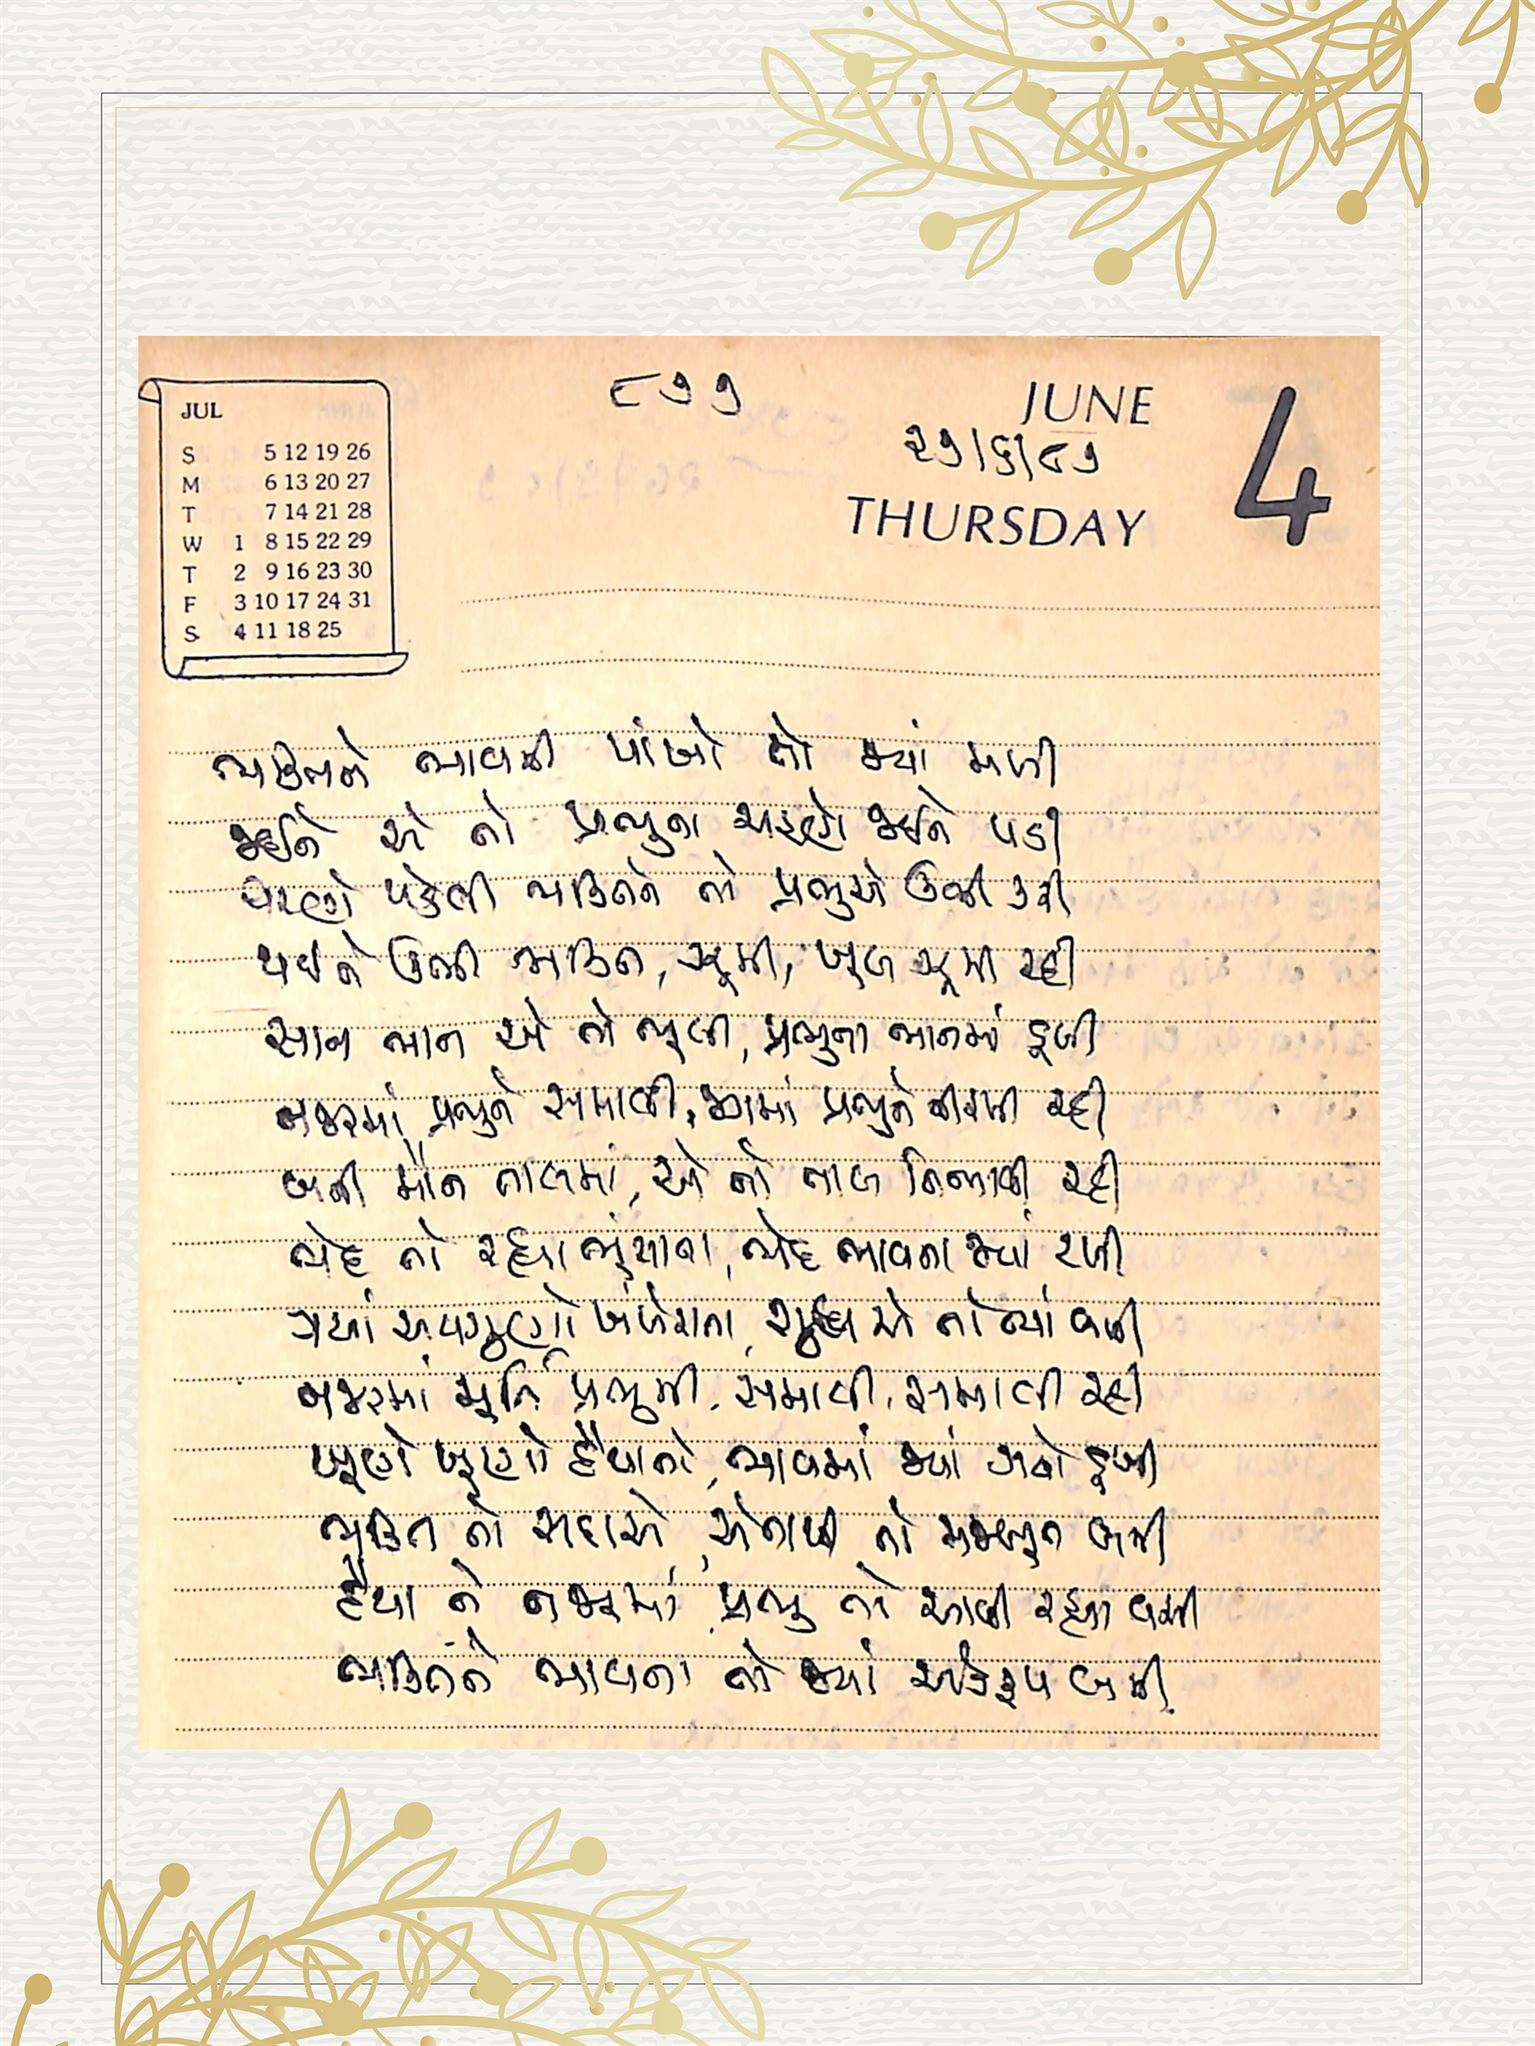 JUL
S 5 12 19 26
M 6 13 20 27
T 7 14 21 28
W 1 8 15 22 29
T 2 9 16 23 30
F 3 10 17 24 31
S 4 11 18 25
૮૭૭
JUNE
૨૭/૬/૮૭
THURSDAY
4
ભક્તિને ભાવની પાંખો તો જ્યાં મળી
જઈને એ તો પ્રભુના ચરણે જઈને પડી
ચરણે પડેલી ભક્તિને તો પ્રભુએ ઉભી કરી
થઈને ઉભી ભક્તિ, ઝૂમી, ખૂબ ઝૂમી રહી
સાન ભાન એ તો ભૂલી, પ્રભુના ભાનમાં ડૂબી
નજરમાં પ્રભુને સમાવી, જગમાં પ્રભુને નીરખી રહી
બની મૌન તાલમાં, એ તો તાલ મિલાવી રહી
ભેદ તો રહ્યા ભુંસાતા, ભેદ ભાવના જ્યાં ટળી
ગયાં અવગુણો ખંખેરાતા, શુદ્ધ એ તો ત્યાં બની
નજરમાં મૂર્તિ પ્રભુની, સમાવી, સમાવી રહી
ખૂણે ખૂણો હૈયાનો, ભાવમાં જ્યાં ગયો ડૂબી
ભક્તિ તો સદાએ, એનાથી તો મજબૂત બની
હૈયા ને નજરમાં, પ્રભુ તો આવી રહ્યા વસી
ભક્તિને ભાવના તો જ્યાં એકરૂપ બની